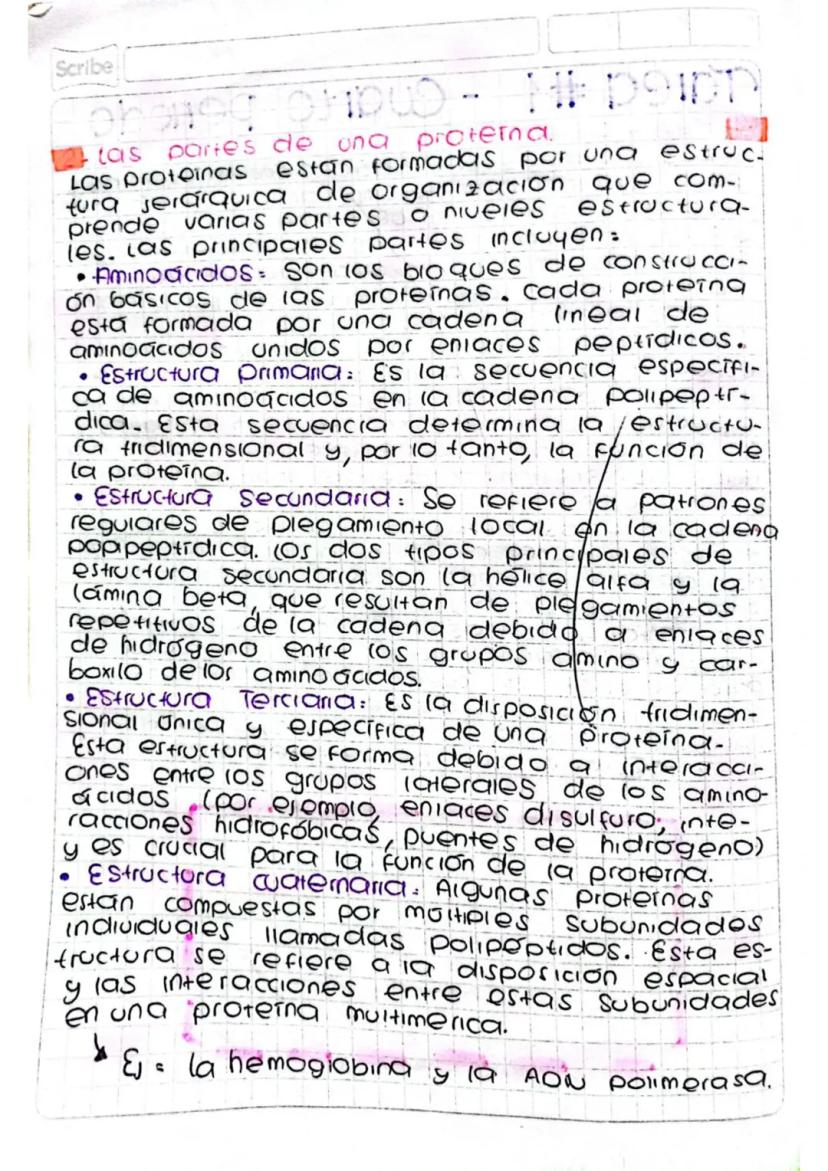 Scribe
Tarea #1 - Cuarto
- Las partes de una proteína.
Las proteínas están formadas por una estruc-
tura jerárquica de organización que com-
prende varias partes o niveles estructura-
les. Las principales partes incluyen:
• Aminoácidos: Son los bloques de construcci-
ón básicos de las proteínas. Cada proteína
está formada por una cadena lineal de
aminoácidos unidos por enlaces peptídicos.
• Estructura Primaria: Es la secuencia específi-
ca de aminoácidos en la cadena polipeptí-
dica. Esta secuencia determina la estructu-
ra tridimensional y, por lo tanto, la función de
la proteína.
• Estructura Secundaria: Se refiere a patrones
regulares de plegamiento local en la cadena
popipeptídica. Los dos tipos principales de
estructura secundaria son la hélice alfa y la
lámina beta, que resultan de plegamientos
repetitivos de la cadena debido a enlaces
de hidrógeno entre los grupos amino y car-
boxilo de los aminoácidos.
• Estructura Terciaria: Es la disposición tridimen-
sional única y específica de una proteína.
Esta estructura se forma debido a interacci-
ones entre los grupos laterales de los amino-
ácidos (por ejemplo, enlaces disulfuro, inte-
racciones hidrofóbicas, puentes de hidrógeno)
y es crucial para la función de la proteína.
• Estructura cuaternaria: Algunas proteínas
están compuestas por múltiples subunidades
individuales llamadas polipéptidos. Esta es-
tructura se refiere a la disposición espacial
y las interacciones entre estas subunidades
en una proteína multimérica.
Ej: la hemoglobina y la ADN polimerasa.